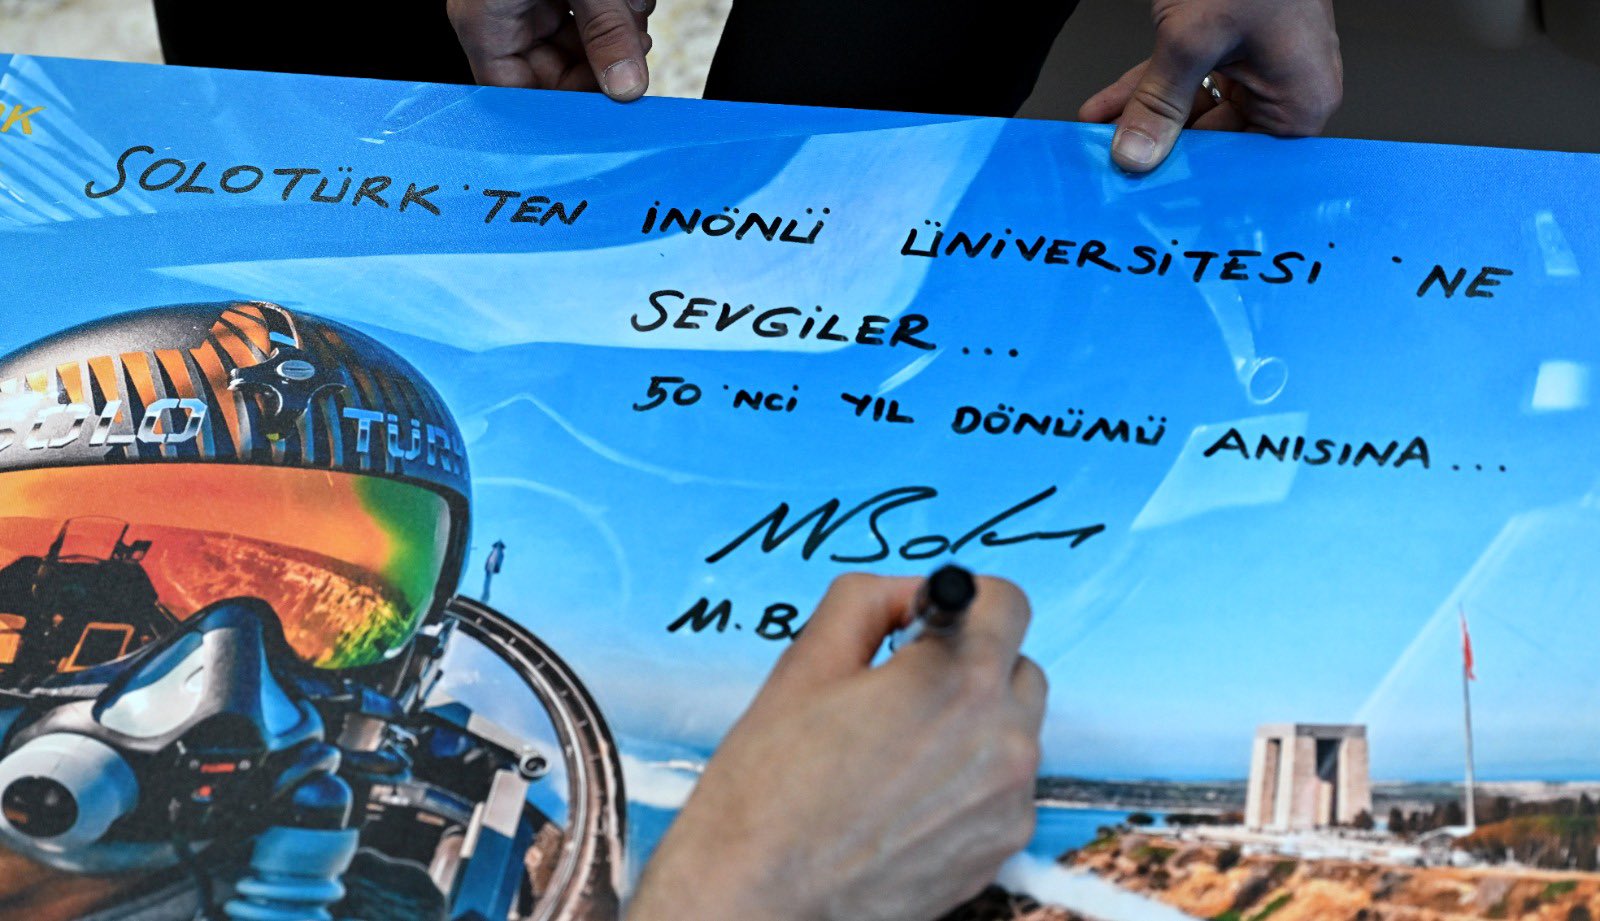 RK
SOLOTÜRK'TEN İNÖNÜ ÜNİVERSİTESİ'NE
SEVGİLER...
50'NCİ YIL DÖNÜMÜ ANISINA...
M. BA
SOLO TÜRK